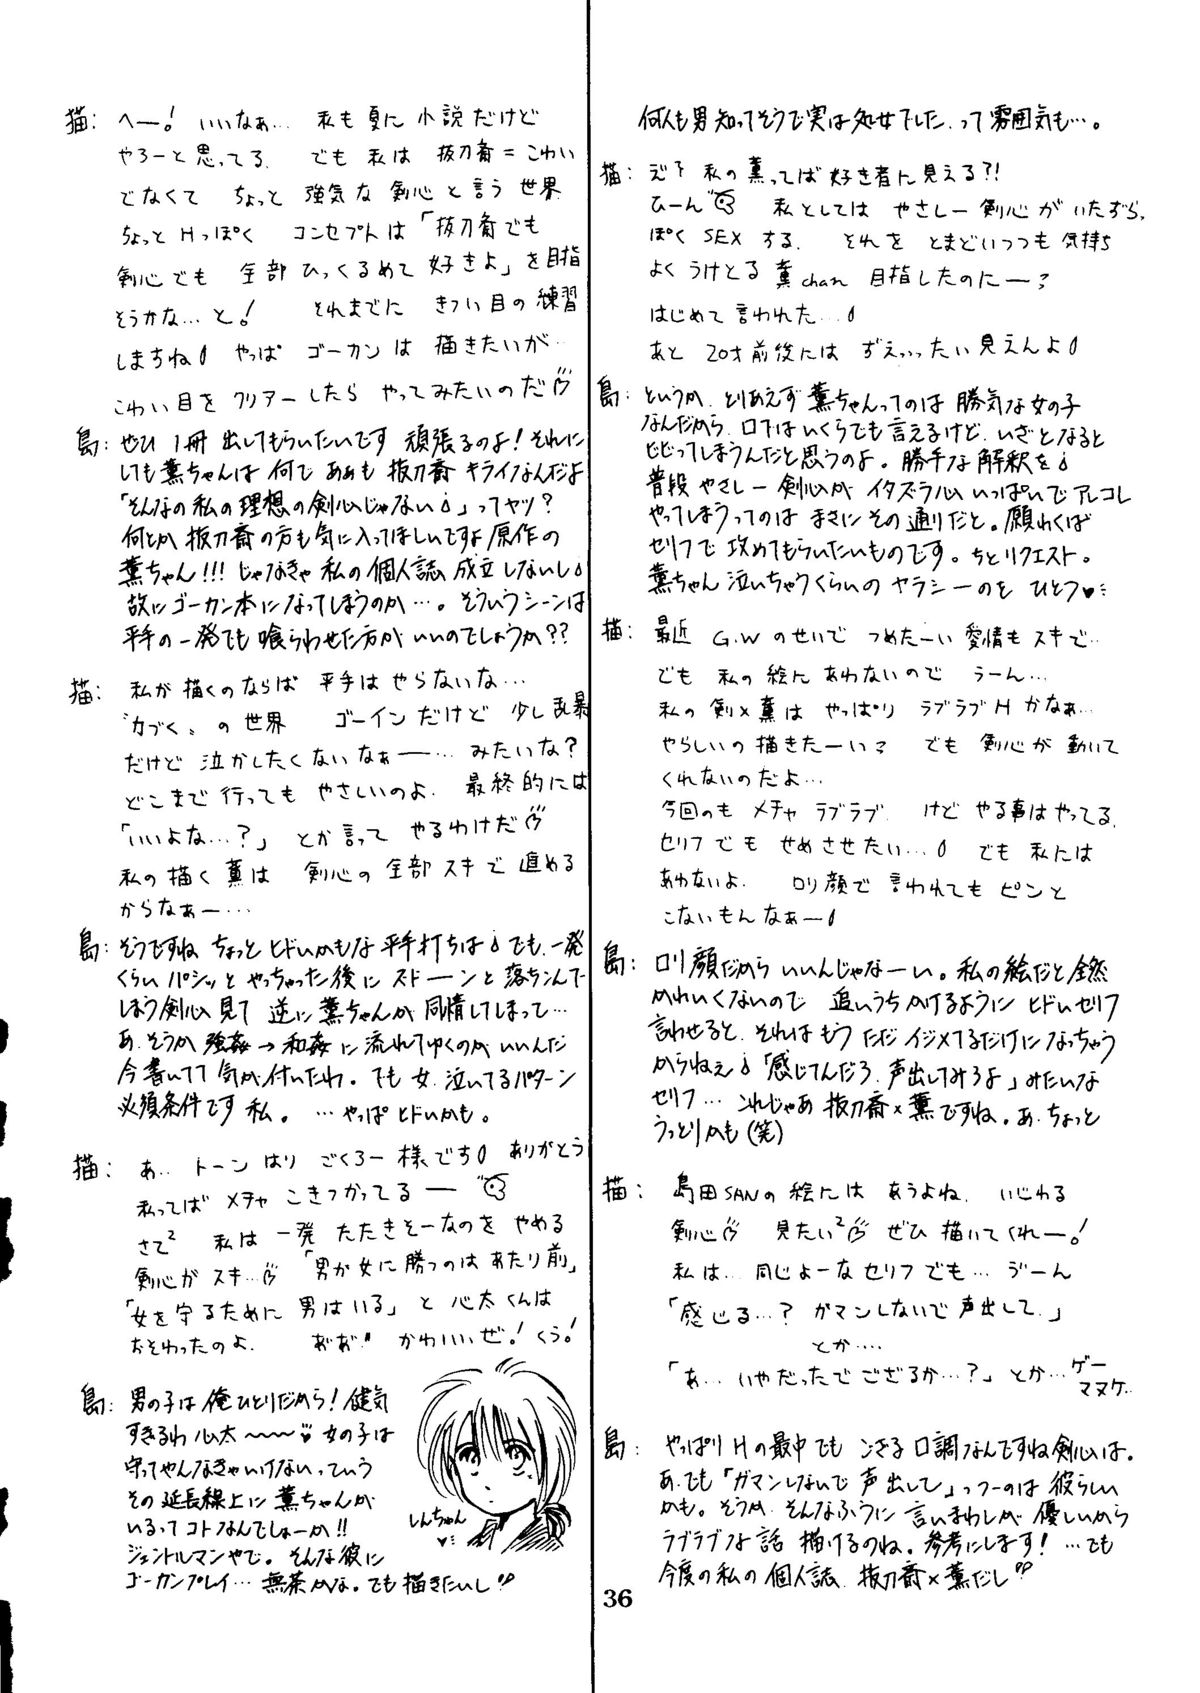 猫: へー! いいなぁ… 私も夏に小説だけど
やろーと思ってる. でも私は 抜刀斎=こわい
でなくて ちょっと強気な剣心と言う世界
ちょっとHっぽく コンセプトは「抜刀斎でも
剣心でも 全部ひっくるめて好きよ」を目指
そうかな…と! それまでに きつい目の練習
しますね やっぱ ゴーカンは描きたいが…
こわい目をクリアーしたら やってみたいのだ
島: ぜひ1冊出してもらいたいです 頑張るのよ! それに
しても薫ちゃんは何で ああも抜刀斎キライなんだよ
「そんなの私の理想の剣心じゃない」ってヤツ?
何とか抜刀斎の方も気に入ってほしいですよ原作の
薫ちゃん!!! じゃなきゃ私の個人誌成立しないし
故にゴーカン本になってしまうのか…。そういうシーンは
平手の一発でも喰らわせた方がいいのでしょうか??
猫: 私が描くのならば 平手はやらないな…
〝力づく〟の世界 ゴーインだけど 少し乱暴
だけど 泣かしたくないなぁー… みたいな?
どこまで行っても やさしいのよ. 最終的には
「いいよな…?」とか言って やるわけだ
私の描く薫は 剣心の全部スキで進める
からなぁー…
島: そうですね ちょっとヒドいかもな平手打ちは でも、一発
くらいパシッとやっちゃった後に ズドーンと落ちこんで
しまう剣心見て 逆に薫ちゃんが同情してしまって…
あ、そうか 強姦→和姦に流れてゆくのがいいんだ
今書いてて気が付いたわ。でも女、泣いてるパターン
必須条件です 私。…やっぱヒドいかも。
猫: あ.. トーンはり ごくろー様です ありがとう
私ってば メチャこきつかってるー
さて² 私は一発たたきそーなのをやめる
剣心がスキ… 「男が女に勝つのはあたり前」
「女を守るために 男はいる」と心太くんは
おそわったのよ. あ゛あ゛!! かわいいぜ! くう!
島: 男の子は俺ひとりだから! 健気
すぎるわ心太〜〜〜 女の子は
守ってやんなきゃいけないっていう
その延長線上に薫ちゃんが
いるってコトなんでしょーか!!
ジェントルマンやで。そんな彼に
ゴーカンプレイ… 無茶かな。でも描きたいし
しんちゃん
何人も男知ってそうで実は処女でした、って雰囲気も…。
猫: え? 私の薫ってば好き者に見える?!
ひーん 私としては やさしー剣心がいたずら,
ぽくSEXする. それを とまどいつつも 気持ち
よくうけとる薫chan 目指したのにー?
はじめて言われた…
あと 20才前後には ずえっったい見えんよ
島: というか、とりあえず薫ちゃんってのは 勝気な女の子
なんだから、口ではいくらでも言えるけど、いざとなると
ビビってしまうんだと思うのよ。勝手な解釈を
普段やさしー剣心がイタズラ心いっぱいでアレコレ
やってしまうってのは まさにその通りだと。願わくば
セリフで攻めてもらいたいものです。ちとリクエスト。
薫ちゃん泣いちゃうくらいのヤラシーのを ひとつ♥
猫: 最近 G.Wのせいで つめたーい愛情もスキで…
でも 私の絵にあわないので うーん…
私の剣×薫は やっぱり ラブラブHかなぁ…
やらしいの描きたーい? でも 剣心が動いて
くれないのだよ…
今回のも メチャラブラブ. けど やる事はやってる.
セリフでも せめさせたい… でも 私には
あわないよ. ロリ顔で言われても ピンと
こないもんなぁー
島: ロリ顔だからいいんじゃなーい。私の絵だと全然
かわいくないので 追いうちかけるように ヒドいセリフ
言わせると、それはもう ただイジメてるだけになっちゃう
からねぇ 「感じてんだろ、声出してみろよ」みたいな
セリフ… これじゃあ抜刀斎×薫ですね。あ、ちょっと
うっとりかも(笑)
猫: 島田SANの絵には あうよね. いじわる
剣心 見たい² ぜひ 描いてくれー!
私は… 同じよーなセリフでも… う゛ーん
「感じる…? ガマンしないで声出して.」
とか….
「あ… いやだったでござるか…?」とか…ゲー
マヌケ..
島: やっぱりHの最中でも ござる口調なんですね剣心は。
あ、でも「ガマンしないで声出して」っつーのは彼らしい
かも。そうか、そんなふうに 言いまわしが優しいから
ラブラブな話 描けるのね。参考にします! …でも
今度の私の個人誌、抜刀斎×薫だし
36